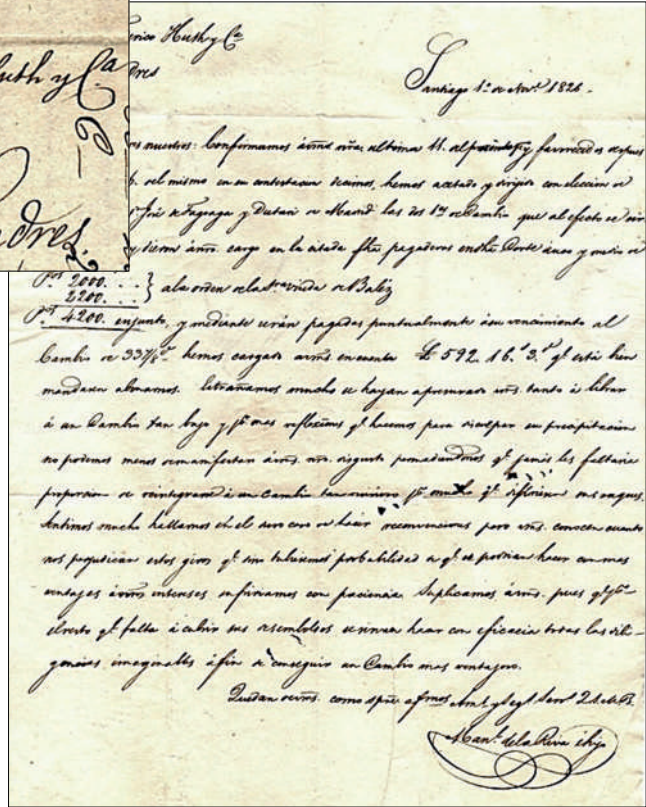 Huth y Cª
Londres
Santiago 1º de Novº 1826.
nuestros: Confirmamos última 11. al favorecidos despues
del mismo en su contestacion decimos, hemos acetado y dirijido con eleccion de
José de Fagoaga y Dutari de Madrid las dos 1as de Cambio que al efecto se
cargo en la citada fha pagaderas en dha Corte á uso y medio de
Ps. 2000...
2200...} a la orden de la Sra Viuda de Baliz
Ps. 4200. en junto, y mediante serán pagadas puntualmente á su vencimiento al
Cambio de 37 7/8 hemos cargado á vms. en cuenta £ 592. 16. 3. q.e está bien
mandaren abonarnos. Estrañamos mucho se hayan apresurado vms. tanto á librar
á un Cambio tan bajo y p.r mas reflexiones q.e hacemos para disculpar su precipitacion
no podemos menos de manifestar á vms. nro. disgusto q.e jamás les faltaria
proporcion de reintegrarse á un Cambio tan mucho q.e difiriesen sus
Sentimos mucho hallarnos en el duro caso de hacer reconvenciones pero vms. conocen cuanto
nos perjudican estos giros q.e sino tubiesemos probabilidad de q.e se podrian hacer con mas
ventajas á nros intereses sufririamos con paciencia. Suplicamos á vms. pues q.e p.r
el resto q.e falta á cubrir sus desembolsos se sirvan hacer con eficacia todas las dili-
gencias imaginables á fin de conseguir un Cambio mas ventajoso.
Quedan de vms. como spre afmos Am.s y Seg.s Serv.s
Man.l de la Riva é hijo